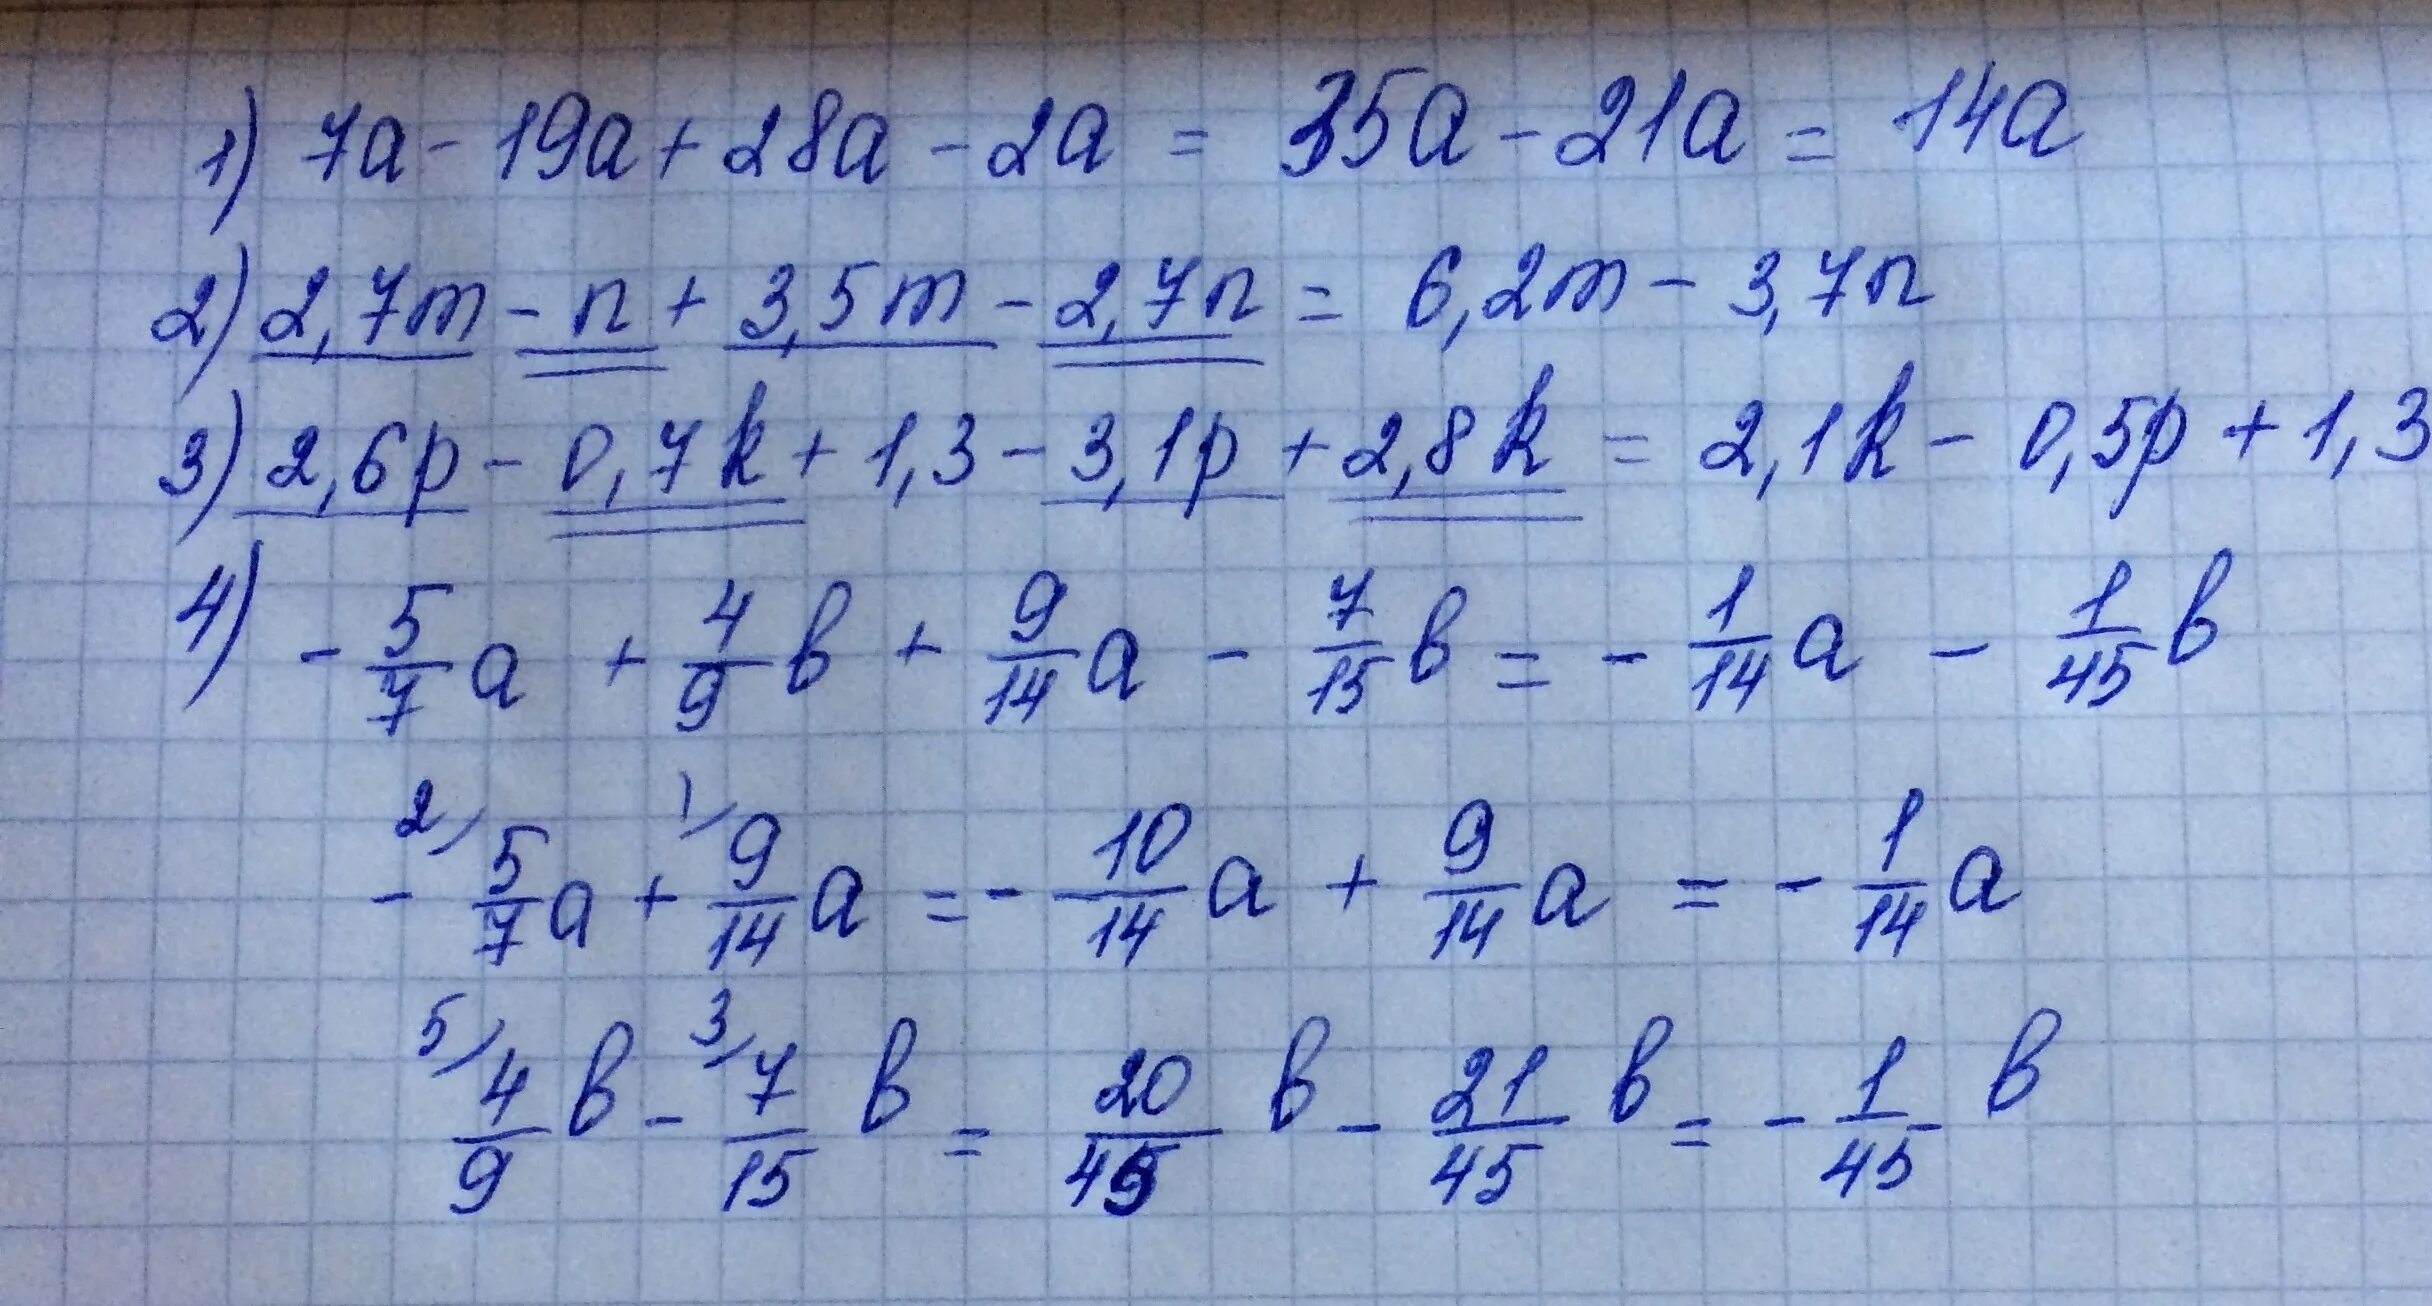 1) 7a - 19a + 28a - 2a = 35a - 21a = 14a
2) 2,7m - n + 3,5m - 2,7n = 6,2m - 3,7n
3) 2,6p - 0,7k + 1,3 - 3,1p + 2,8k = 2,1k - 0,5p + 1,3
4) - 5/7 a + 4/9 b + 9/14 a - 7/15 b = - 1/14 a - 1/45 b
- 2/ 5/7 a + 1/ 9/14 a = - 10/14 a + 9/14 a = - 1/14 a
5/ 4/9 b - 3/ 7/15 b = 20/45 b - 21/45 b = - 1/45 b